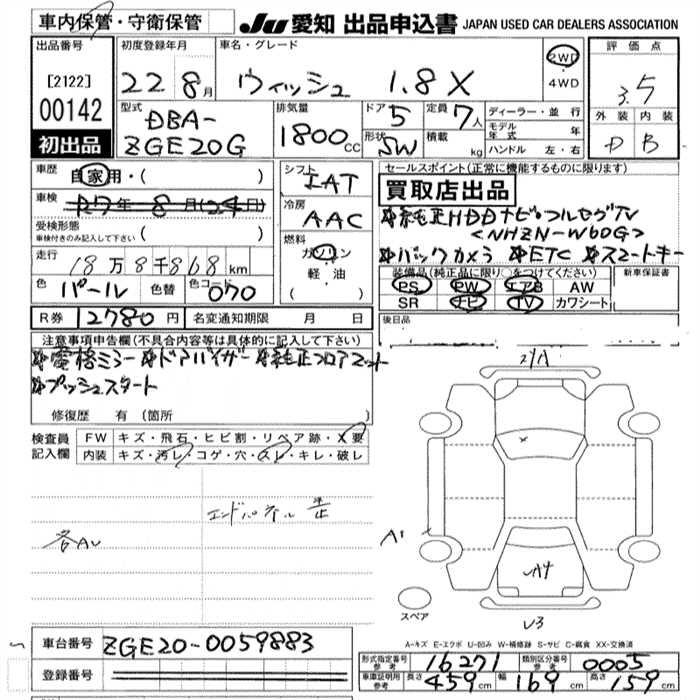 車内保管・守衛保管
JU 愛知 出品申込書 JAPAN USED CAR DEALERS ASSOCIATION
出品番号
[2122]
00142
初出品
初度登録年月
22 8月
車名・グレード
ウィッシュ 1.8X
2WD
・
4WD
評価点
3.5
外装 内装
D B
型式
DBA-
ZGE20G
排気量
1800cc
ドア 5
形状 SW
定員 7人
積載 kg
ディーラー・並行
モデル年式 年
ハンドル 左・右
車歴
自家用・( )
車検
R7年8月(24日)
受検形態
車検付きのみ記入して下さい( )
走行
18万8千868km
色 パール 色替 色コード 070
シフト
IAT
冷房
AAC
燃料
ガソリン
軽・油
( )
セールスポイント(正常に機能するものに限り)
買取店出品
純正HDDナビ・フルセグTV
<NHZN-W60G>
バックカメラ ETC スマートキー
装備品(純正品に限り○をつけてください)
PS PW エアB AW
SR ナビ TV カワシート
新車保証書
後日品
R券 12780円 名変通知期限 月 日
注意事項申告欄(不具合内容等は具体的に記入して下さい)
電格ミラー ドアバイザー 純正フロアマット
プッシュスタート
修復歴 有(箇所 )
検査員
記入欄
FW キズ・飛石・ヒビ割・リペア跡・X要
内装 キズ・汚レ・コゲ・穴・スレ・キレ・破レ
エンドパネル 歪
各AU
2/A
A1
A4
U3
スペア
A-キズ E-エクボ U-凹み W-補修跡 S-サビ C-腐食 XX-交換済
車台番号 ZGE20-0059883
登録番号
形式指定番号 参考 16271 類別区分番号 参考 0005
車庫証明用 参考 長さ 459cm 幅 169cm 高さ 159cm